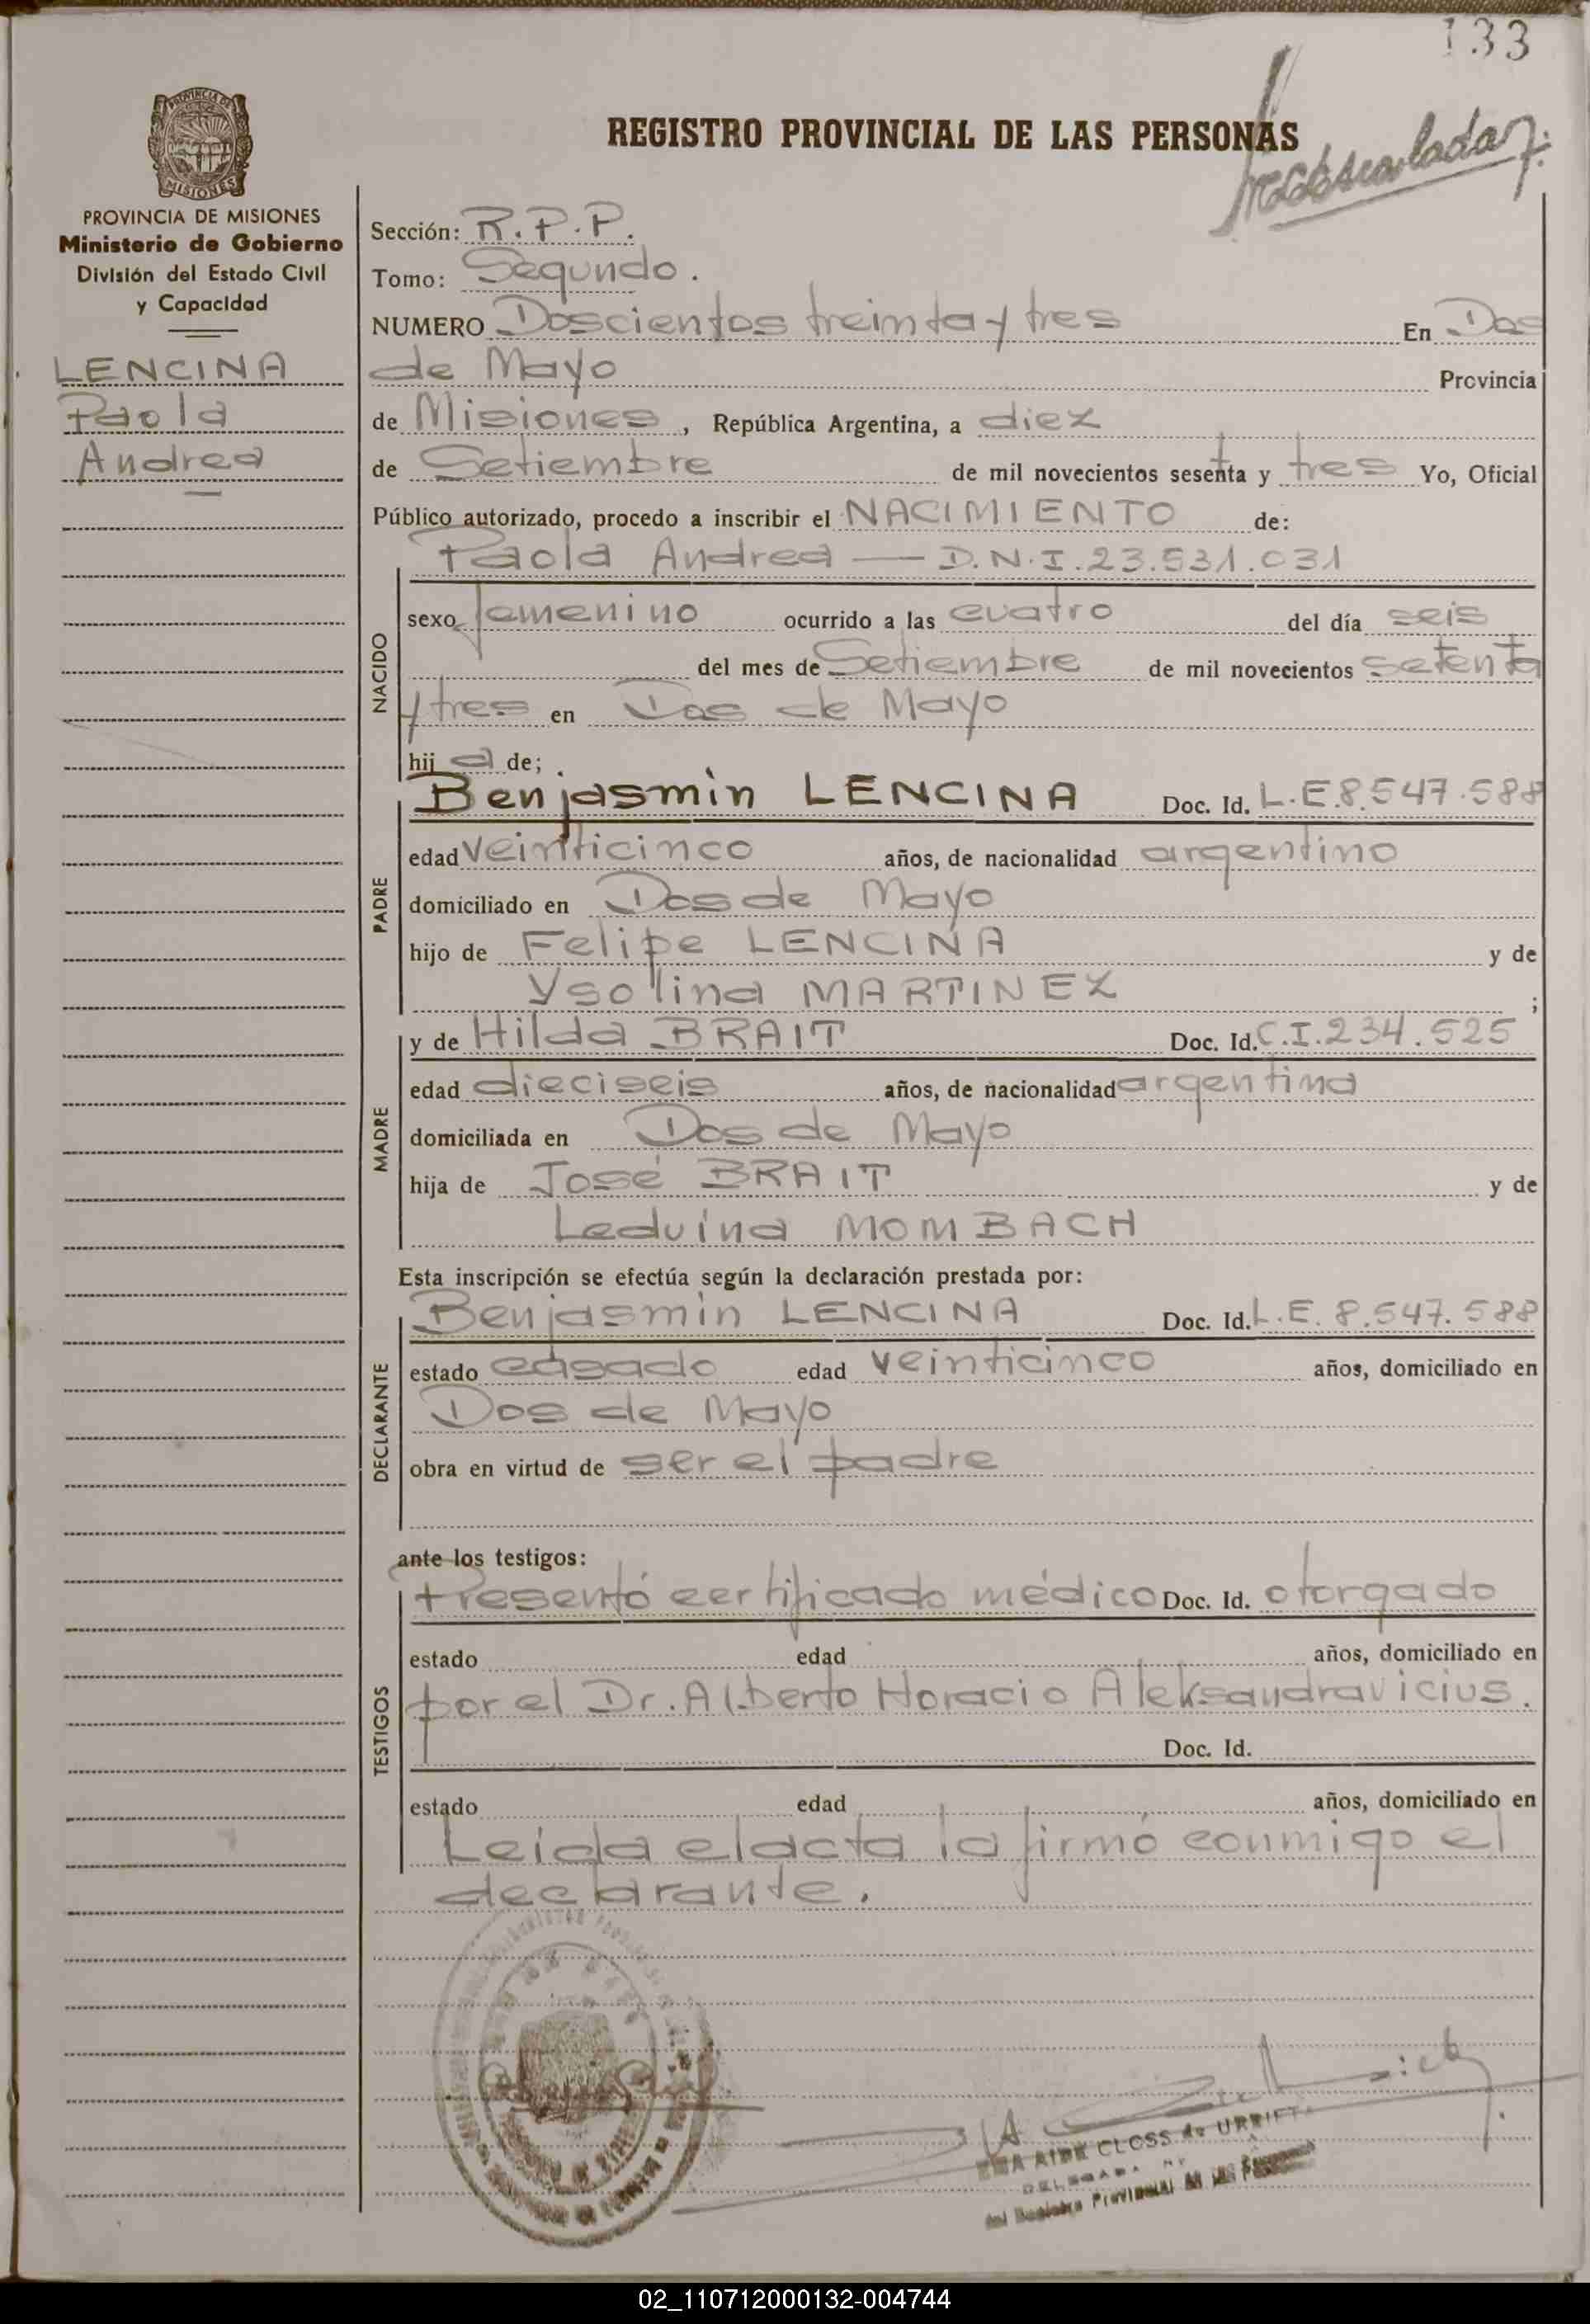 133
REGISTRO PROVINCIAL DE LAS PERSONAS
PROVINCIA DE
MISIONES
PROVINCIA DE MISIONES
Ministerio de Gobierno
División del Estado Civil
y Capacidad
LENCINA
Paola
Andrea
Sección: R.P.P.
Tomo: Segundo.
NUMERO Doscientos treinta y tres En Dos
de Mayo Provincia
de Misiones, República Argentina, a diez
de Setiembre de mil novecientos sesenta y tres Yo, Oficial
Público autorizado, procedo a inscribir el NACIMIENTO de:
Paola Andrea — D.N.I.23.531.031
NACIDO
sexo femenino ocurrido a las cuatro del día seis
del mes de Setiembre de mil novecientos setenta
y tres en Dos de Mayo
hij a de;
PADRE
Benjasmin LENCINA Doc. Id. L.E.8.547.588
edad veinticinco años, de nacionalidad argentino
domiciliado en Dos de Mayo
hijo de Felipe LENCINA y de
Ysolina MARTINEZ ;
MADRE
y de Hilda BRAIT Doc. Id. C.I.234.525
edad dieciseis años, de nacionalidad argentina
domiciliada en Dos de Mayo
hija de José BRAIT y de
Leduina MOMBACH
Esta inscripción se efectúa según la declaración prestada por:
DECLARANTE
Benjasmin LENCINA Doc. Id. L.E. 8.547.588
estado casado edad veinticinco años, domiciliado en
Dos de Mayo
obra en virtud de ser el padre
ante los testigos:
TESTIGOS
Presentó certificado médico Doc. Id. otorgado
estado edad años, domiciliado en
por el Dr. Alberto Horacio Aleksandravicius.
Doc. Id.
estado edad años, domiciliado en
Leída el acta la firmó conmigo el
declarante.
CLOSS de URRIETA
del Registro Provincial de las Personas
02_110712000132-004744